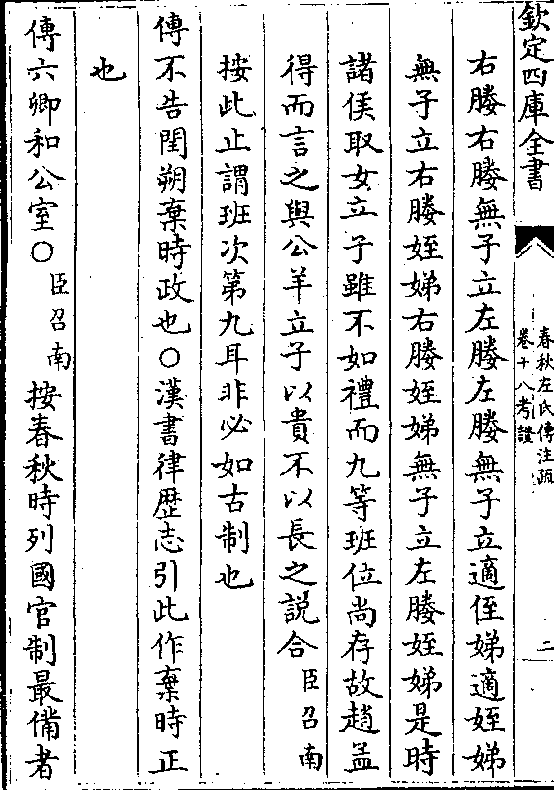 欽定四庫全書
春秋左氏傳注疏
卷十八考證
二
右媵右媵無子立左媵左媵無子立適侄娣適姪娣
無子立右媵姪娣右媵姪娣無子立左媵姪娣是時
諸侯取女立子雖不如禮而九等班位尚存故趙孟
得而言之與公羊立子以貴不以長之說合臣召南
按此止謂班次第九耳非必如古制也
傳不告閏朔棄時政也○漢書律歷志引此作棄時正
也
傳六卿和公室○臣召南按春秋時列國官制最備者